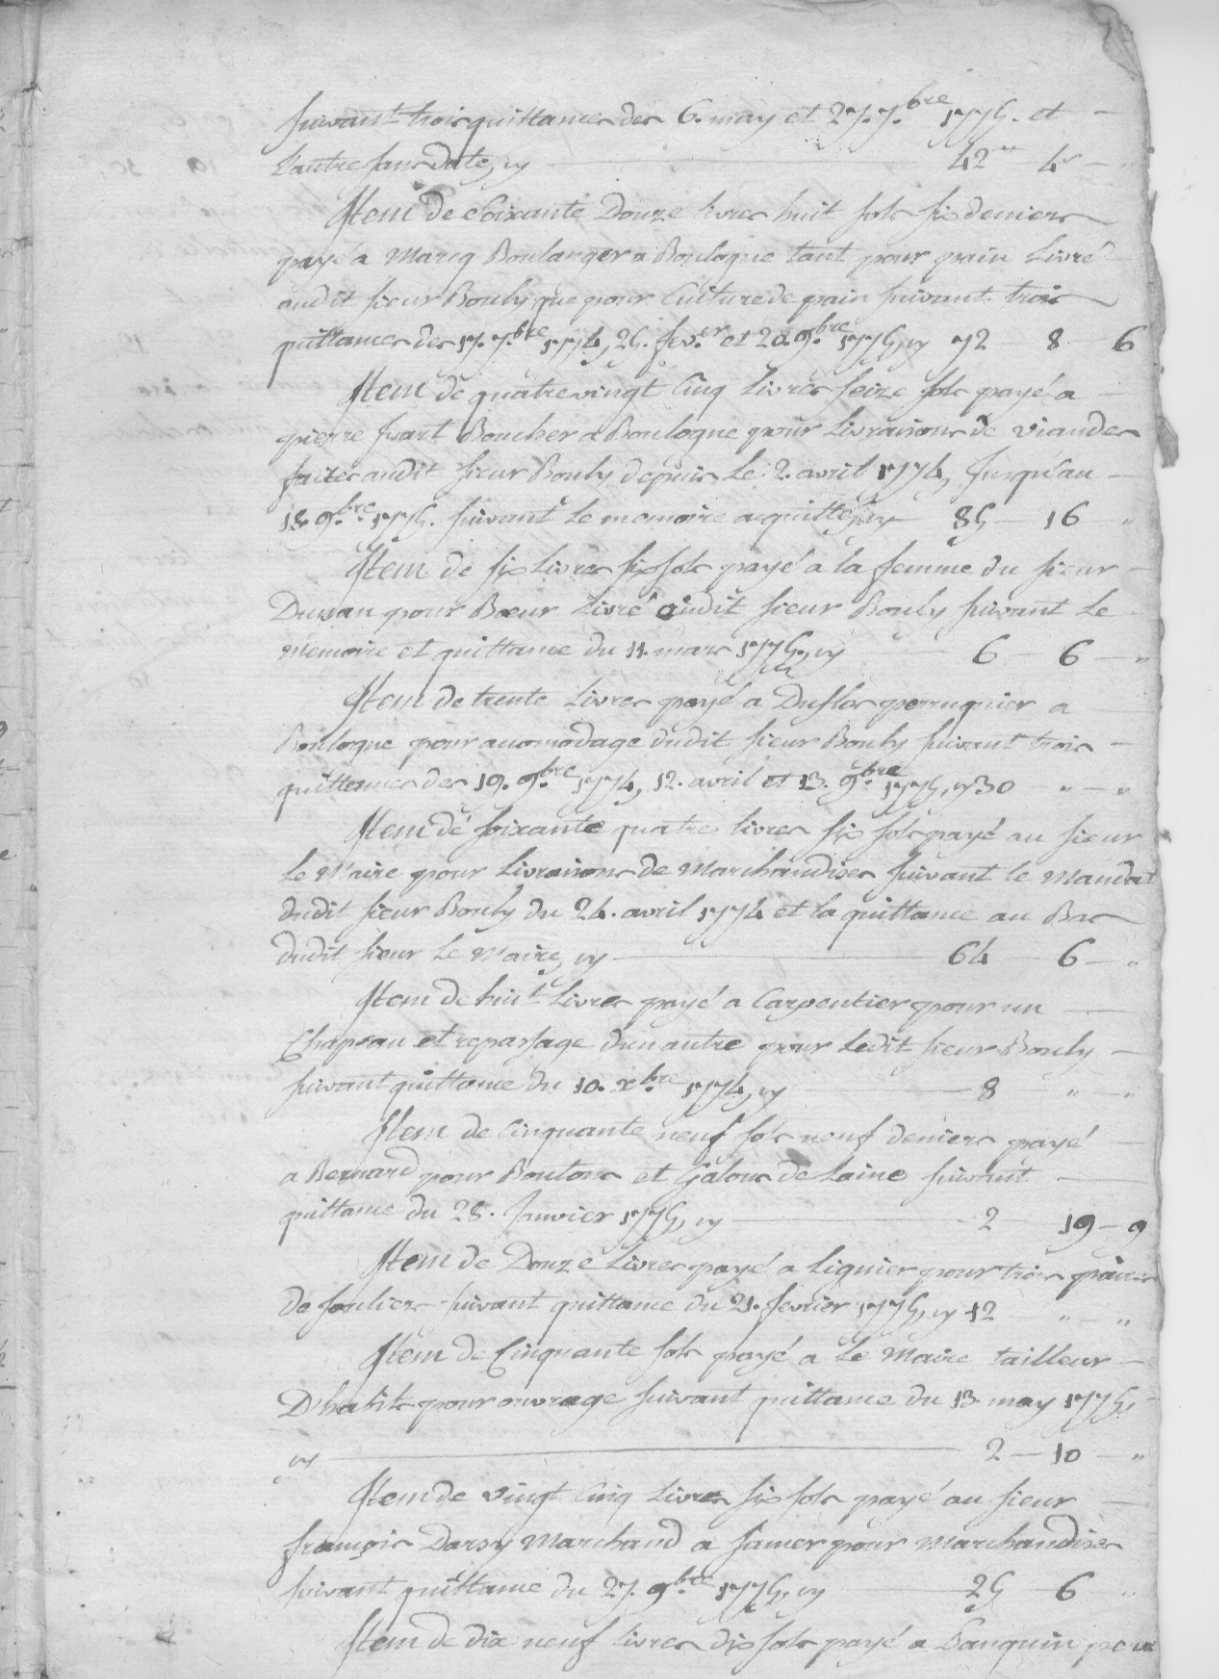 suivant trois quittances des 6. may et 27. 7.bre 1775. et
l'autre sans date, cy 42 4 "
Item de soixante Douze livres huit sols six deniers
payé a Marcq Boulanger a Boulogne tant pour pain livré
audit sieur Bouly que pour Cuiture de pain suivant trois
quittances des 17. 7.bre 1774, 25. fev.er et 20. 9.bre 1775, cy 72 8 6
Item de quatrevingt Cinq livres seize sols payé a
pierre huart Boucher a Boulogne pour livraisons de viandes
faites audit sieur Bouly depuis le 2. avril 1774, Jusqu'au
18. 9.bre 1775. suivant le memoire acquitté, cy 85 16 "
Item de six livres six sols payé a la femme du sieur
Duwan pour Bœur livré audit sieur Bouly suivant le
memoire et quittance du 11. mars 1775, cy 6 6 "
Item de trente livres payé a Duflos perruquier a
Boulogne pour acomodage dudit sieur Bouly suivant trois
quittances des 19. 9.bre 1774, 12. avril et 13. 9.bre 1775, cy 30 " "
Item de soixante quatre livres six sols payé au sieur
Le Maire pour livraisons de Marchandises suivant le mandat
dudit sieur Bouly du 24. avril 1774 et la quittance au Bas
dudit sieur Le Maire, cy 64 6 "
Item de huit livres payé a Carpentier pour un
Chapeau et repassage d'un autre pour ledit sieur Bouly
suivant quittance du 10. x.bre 1774, cy 8 " "
Item de Cinquante neuf sols neuf deniers payé
a Bernard pour Boutons et Galons de laine suivant
quittance du 28. Janvier 1775, cy 2 19 9
Item de Douze livres payé a Liquier pour trois paires
de souliers suivant quittance du 21. fevrier 1775, cy 12 " "
Item de Cinquante sols payé a Le Maire tailleur
D'habits pour ouvrage suivant quittance du 13 may 1775,
cy 2 10 "
Item de vingt Cinq livres six sols payé au sieur
françois Darsy Marchand a samer pour Marchandises
suivant quittance du 27. 9.bre 1775, cy 25 6 "
Item de dix neuf livres dix sols payé a pour